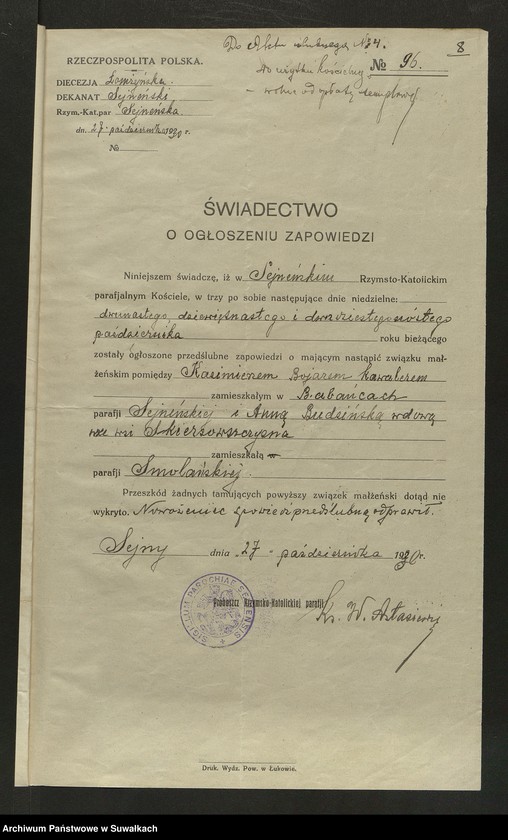 Do Aktu ślubnego № 34.
8
RZECZPOSPOLITA POLSKA.
do użytku kościelnego
№ 96.
DIECEZJA Łomżyńska.
– wolne od opłaty stemplowej
DEKANAT Sejneński
Rzym.-Kat. par Sejneńska.
dn. 27 październik 1930 r.
№
ŚWIADECTWO
O OGŁOSZENIU ZAPOWIEDZI
Niniejszem świadczę, iż w Sejneńskim Rzymsto-Katolickim
parafjalnym Kościele, w trzy po sobie następujące dnie niedzielne:
dwunastego, dziewiętnastego i dwudziestego szóstego
października roku bieżącego
zostały ogłoszone przedślubne zapowiedzi o mającym nastąpić związku mał-
żeńskim pomiędzy Kazimierem Bojarem kawalerem
zamieszkałym w Babańcach
parafji Sejneńskiej i Anną Budzińską wdową
we wsi
zamieszkałą w
parafji Smolańskiej.
Przeszkód żadnych tamujących powyższy związek małżeński dotąd nie
wykryto. Nowożeniec spowiedź przedślubną odprawił.
Sejny dnia 27 października 1930 r.
Proboszcz Rzymsko-Katolickiej parafji
Ks. W.
SIGILLUM PAROCHIAE SEJNENSIS
Druk. Wydz. Pow. w Łukowie.
Archiwum Państwowe w Suwałkach